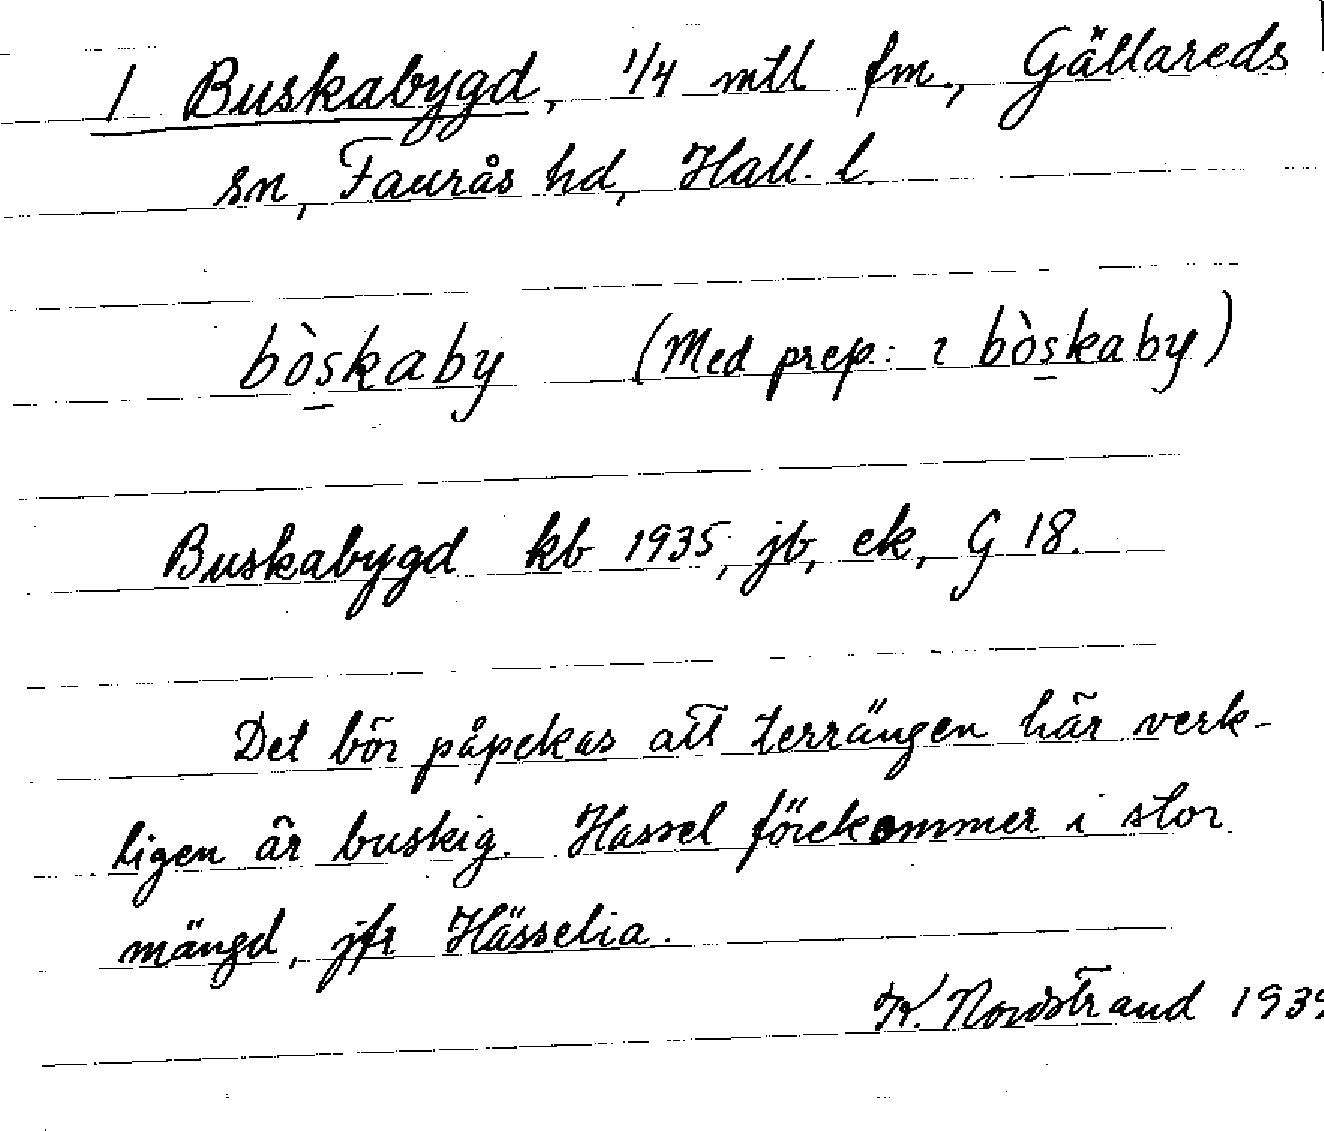 1 Buskabygd, 1/4 mtl fm, Gällareds
sn, Faurås hd, Hall. l.
bòskaby (Med prep.: ı bòskaby)
Buskabygd kb 1935, jb, ek, G 18.
Det bör påpekas att terrängen här verk-
ligen är buskig. Hassel förekommer i stor
mängd, jfr Hässelia.
K. Nordstrand 1939